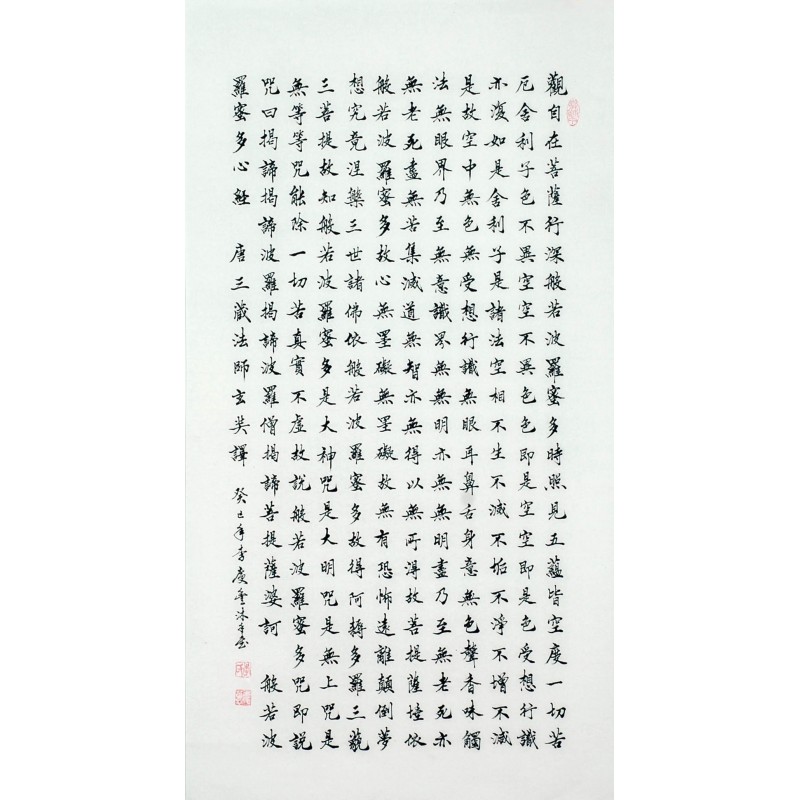 觀自在菩薩行深般若波羅蜜多時照見五蘊皆空度一切苦
厄舍利子色不異空空不異色色即是空空即是色受想行識
亦復如是舍利子是諸法空相不生不滅不垢不淨不增不減
是故空中無色無受想行識無眼耳鼻舌身意無色聲香味觸
法無眼界乃至無意識界無無明亦無無明盡乃至無老死亦
無老死盡無苦集滅道無智亦無得以無所得故菩提薩埵依
般若波羅蜜多故心無罣礙無罣礙故無有恐怖遠離顛倒夢
想究竟涅槃三世諸佛依般若波羅蜜多故得阿耨多羅三藐
三菩提故知般若波羅蜜多是大神咒是大明咒是無上咒是
無等等咒能除一切苦真實不虛故說般若波羅蜜多咒即說
咒曰揭諦揭諦波羅揭諦波羅僧揭諦菩提薩婆訶 般若波
羅蜜多心經 唐三藏法師玄奘譯 癸巳年李慶沐手書